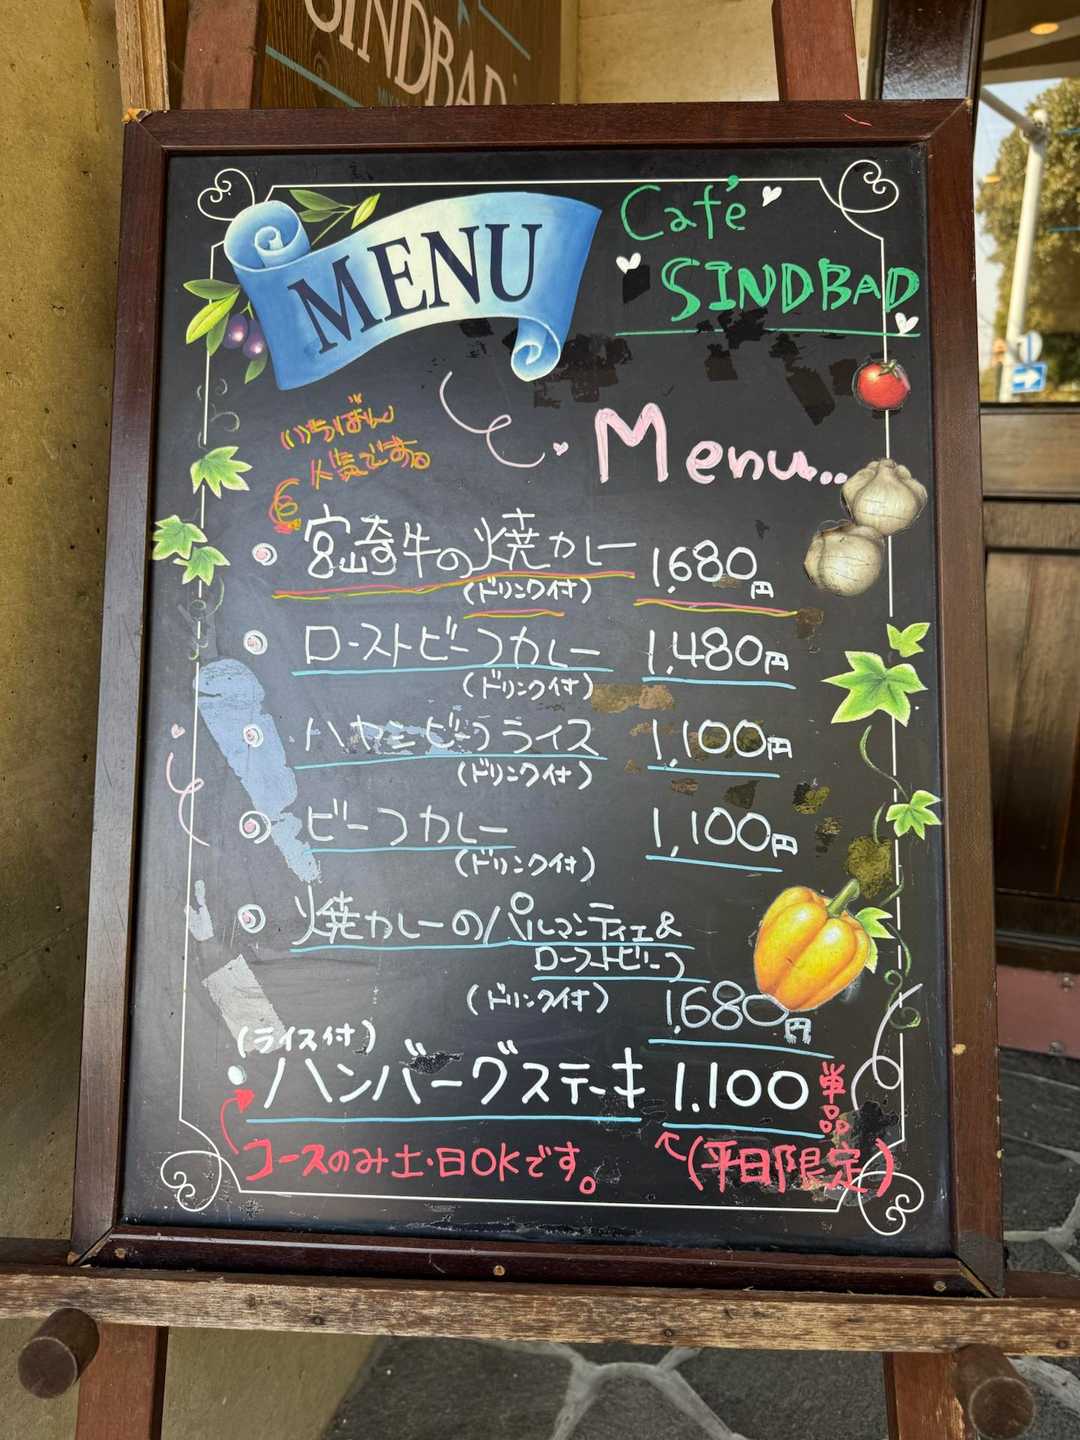 SINDBAD
MENU
Café
SINDBAD
いちばん
人気です。
Menu...
宮崎牛の焼カレー 1,680円
(ドリンク付)
ローストビーフカレー 1,480円
(ドリンク付)
ハヤシビーフライス 1,100円
(ドリンク付)
ビーフカレー 1,100円
(ドリンク付)
焼カレーのパルマンティエ&
ローストビーフ
(ドリンク付) 1,680円
(ライス付)
ハンバーグステーキ 1.100 単品
コースのみ土・日OKです。 (平日限定)